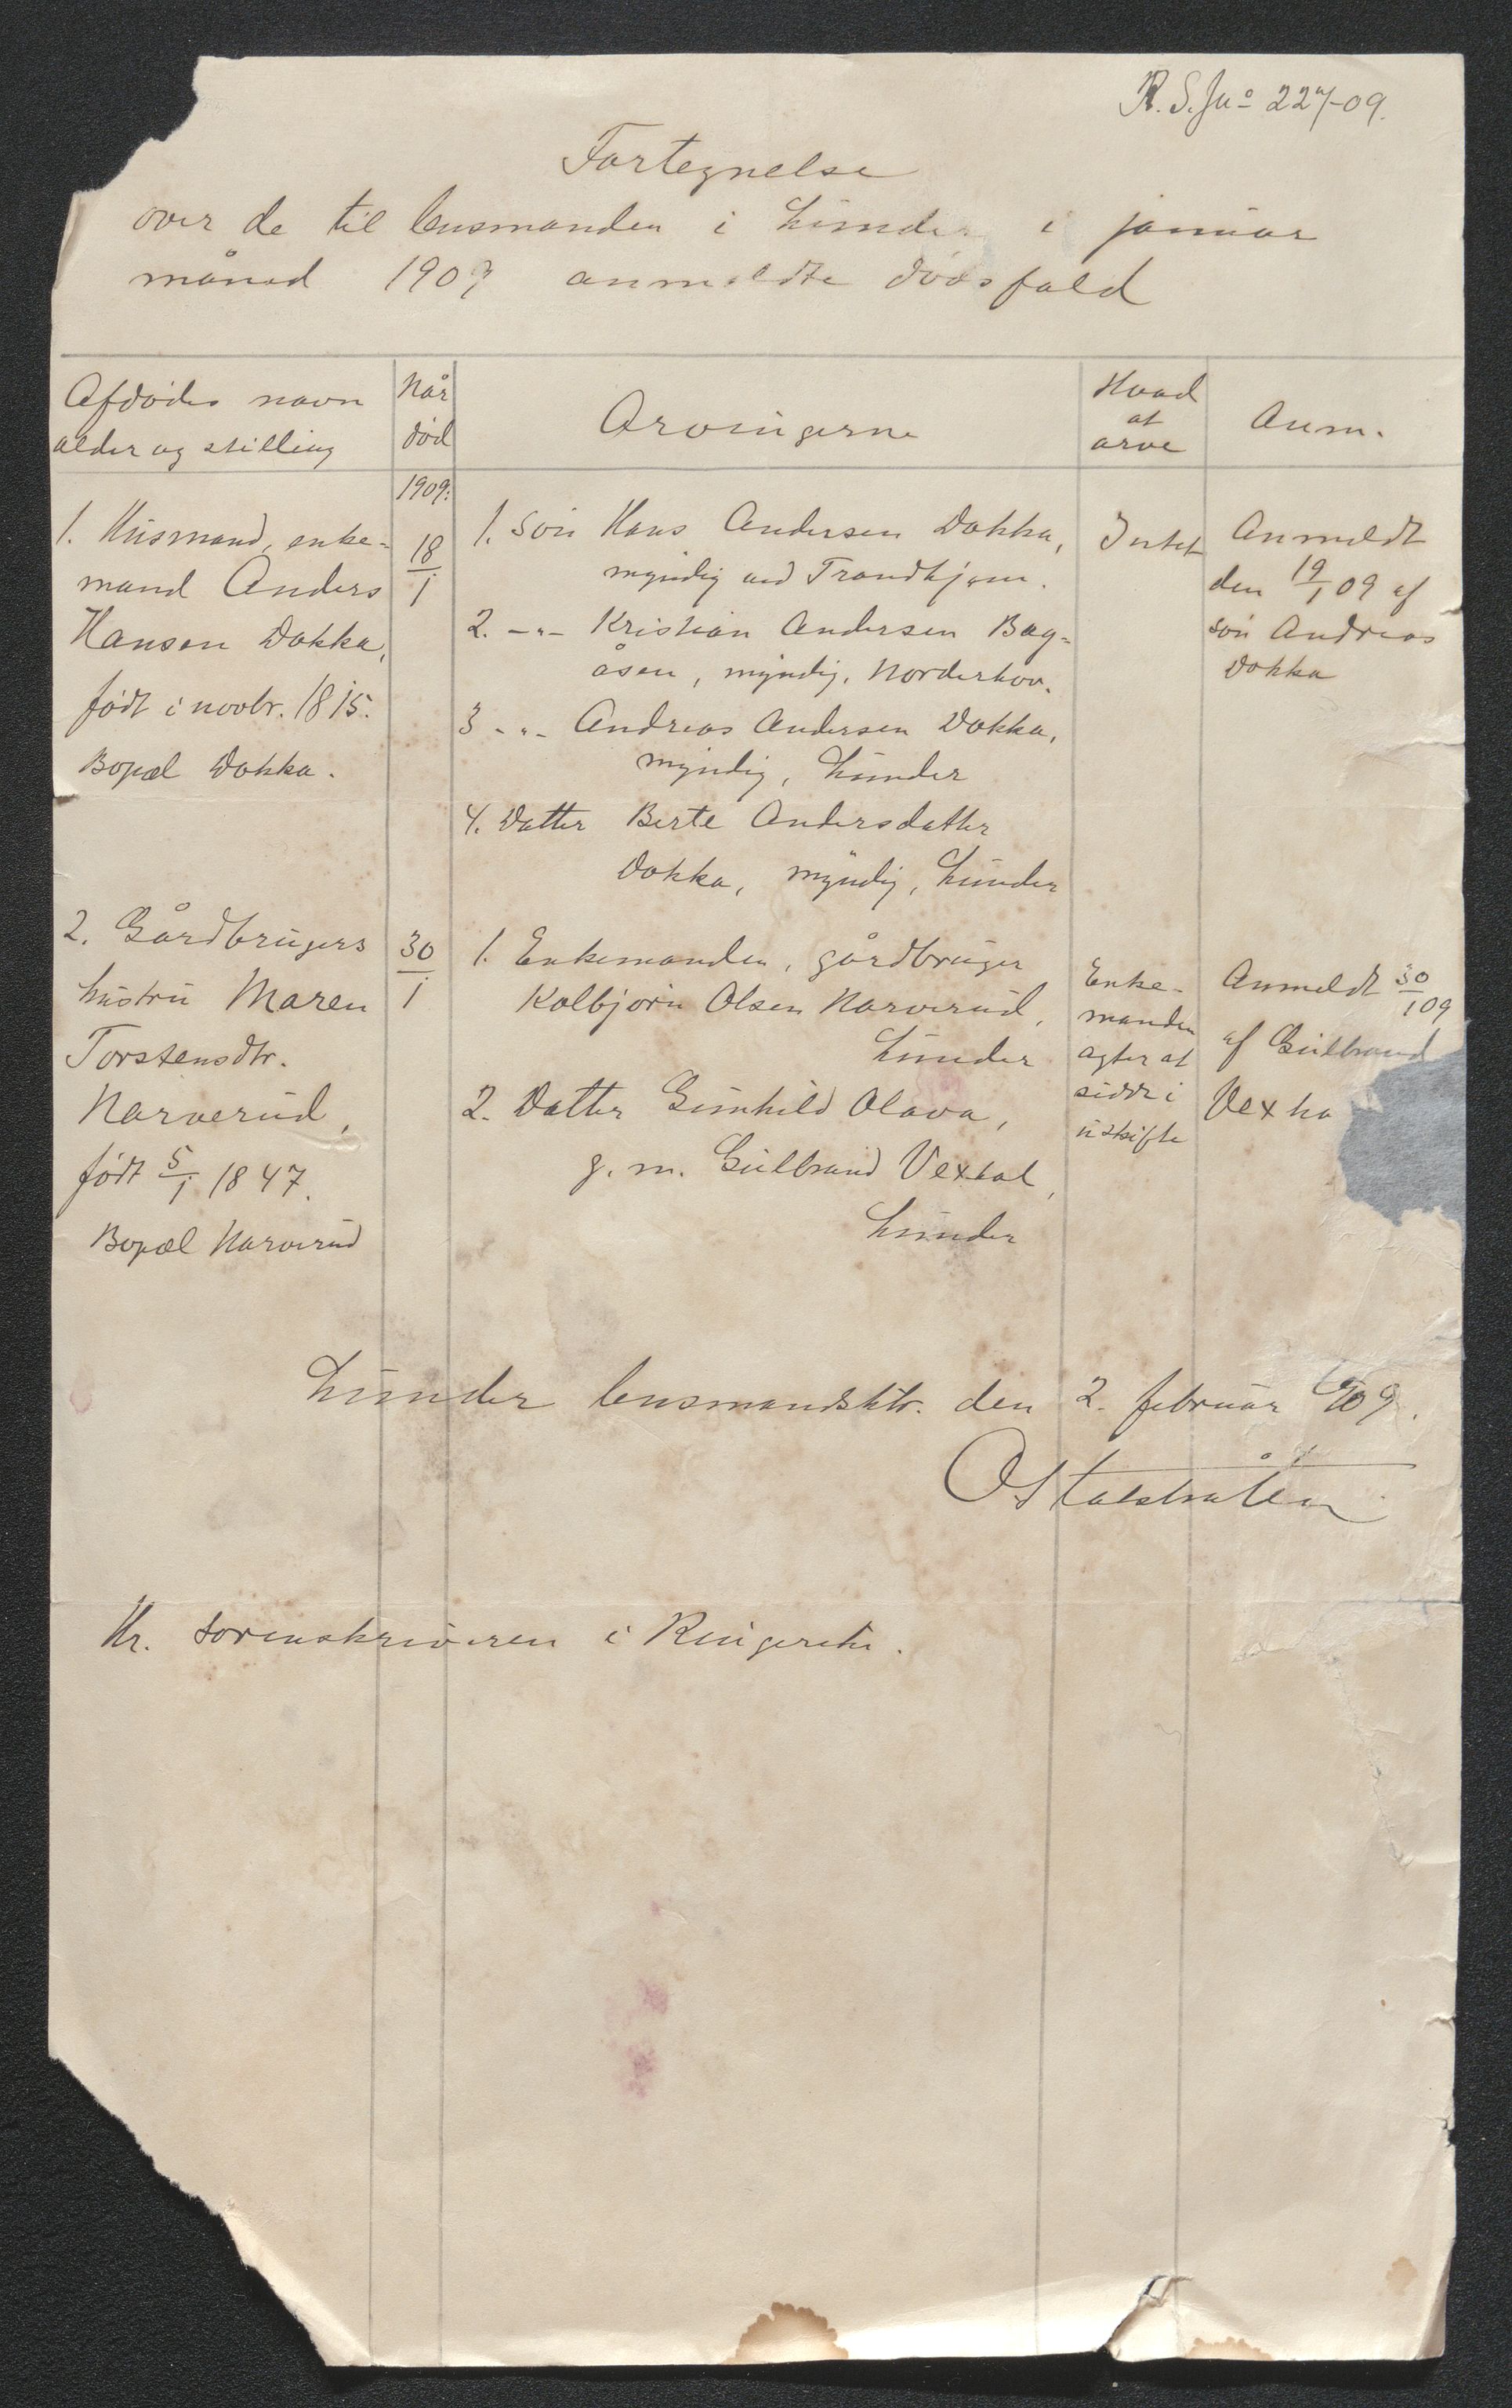 R. S. Jno 227-09.
Fortegnelse
over de til lensmanden i Lunder i januar
måned 1909 anmeldte dødsfald
Afdødes navn
alder og stilling
Når
død
Arvingerne
Hvad
at
arve
Anm.
1909:
1. Husmand, enke-
mand Anders
Hansen Dokka,
født i novbr. 1815.
Bopæl Dokka.
18/1
1. Søn Hans Andersen Dokka,
myndig ved Trondhjem.
2. -"- Kristian Andersen Bag-
åsen, myndig, Norderhov.
3 -"- Andreas Andersen Dokka,
myndig, Lunder
4. Datter Berte Andersdatter
Dokka, myndig, Lunder
Intet
Anmeldt
den 19/1 09 af
søn Andreas
Dokka
2. Gårdbrugers
hustru Maren
Torstensdtr.
Narverud,
født 5/1 1847.
Bopæl Narverud
30/1
1. Enkemanden, gårdbruger
Kolbjørn Olsen Narverud,
Lunder
2. Datter Gunhild Olava,
g. m. Gulbrand Vexhal,
Lunder
Enke-
manden
agter at
sidde i
uskifte
Anmeldt 30/1 09
af Gulbrand
Vexha
Lunder lensmandsktr. den 2. februar 1909.
Hr. sorenskriveren i Ringerike.